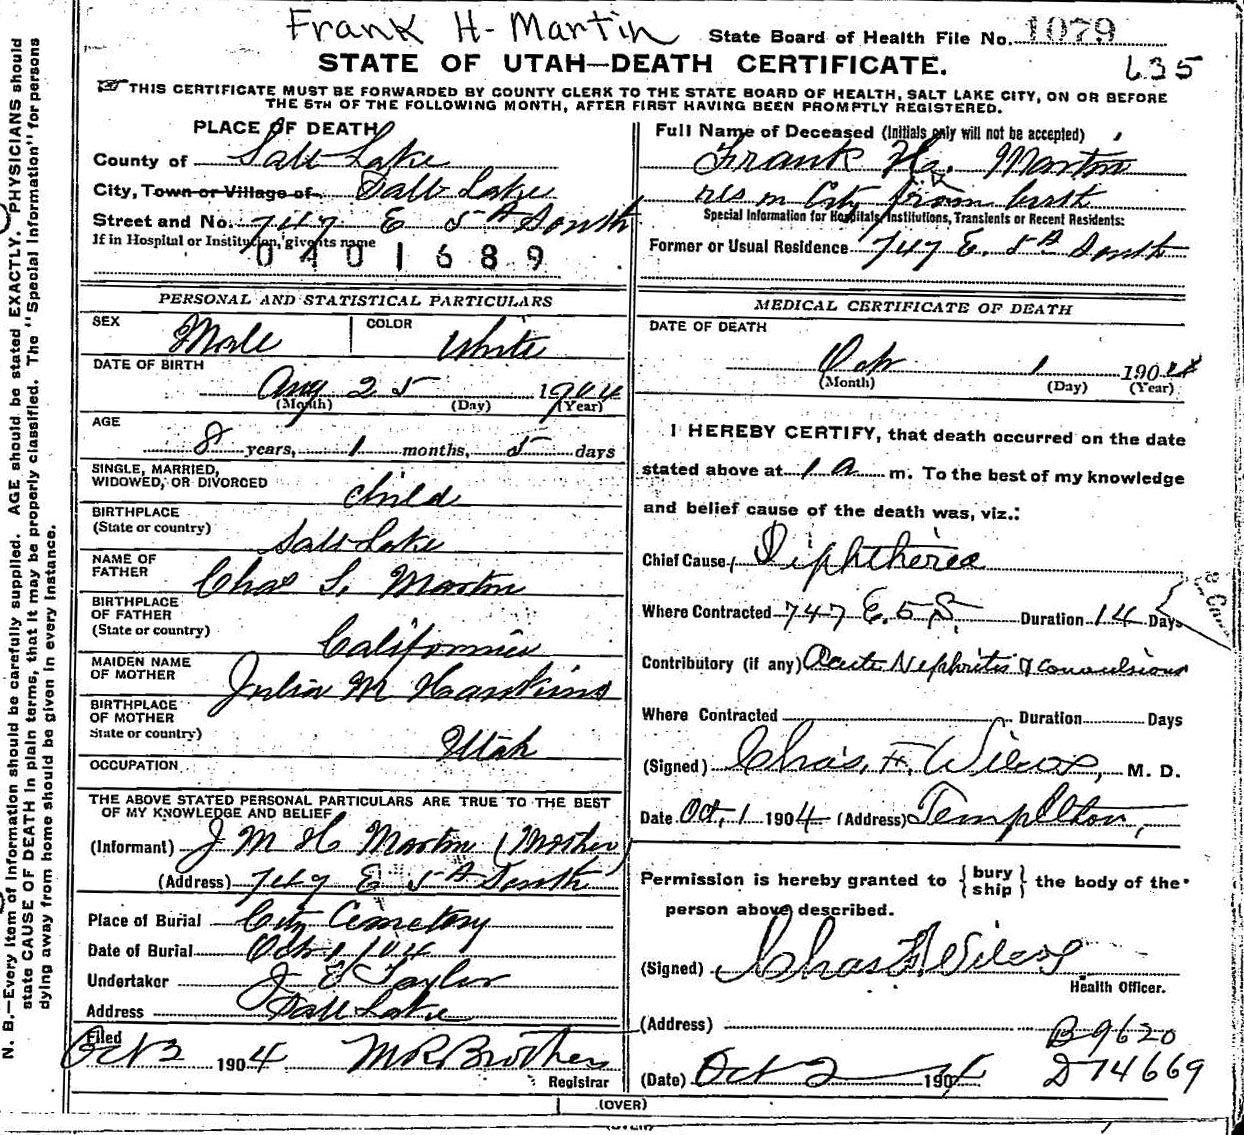 Frank H. Martin
State Board of Health File No. 1079
STATE OF UTAH—DEATH CERTIFICATE.
635
THIS CERTIFICATE MUST BE FORWARDED BY COUNTY CLERK TO THE STATE BOARD OF HEALTH, SALT LAKE CITY, ON OR BEFORE
THE 5TH OF THE FOLLOWING MONTH, AFTER FIRST HAVING BEEN PROMPTLY REGISTERED.
PLACE OF DEATH
County of Salt Lake
City, Town or Village of Salt Lake
Street and No. 747 E 5th South
If in Hospital or Institution, give its name
0401689
Full Name of Deceased (Initials only will not be accepted)
Frank H. Martin
res in City from birth
Special Information for Hospitals, Institutions, Transients or Recent Residents:
Former or Usual Residence 747 E. 5th South
PERSONAL AND STATISTICAL PARTICULARS
SEX Male COLOR White
DATE OF BIRTH
Aug 25 1904
(Month) (Day) (Year)
AGE
8 years, 1 months, 5 days
SINGLE, MARRIED,
WIDOWED, OR DIVORCED child
BIRTHPLACE
(State or country) Salt Lake
NAME OF
FATHER Chas S. Martin
BIRTHPLACE
OF FATHER
(State or country) California
MAIDEN NAME
OF MOTHER Julia M Hawkins
BIRTHPLACE
OF MOTHER
State or country) Utah
OCCUPATION
THE ABOVE STATED PERSONAL PARTICULARS ARE TRUE TO THE BEST
OF MY KNOWLEDGE AND BELIEF
(Informant) J M H Martin (Mother)
(Address) 747 E 5th South
Place of Burial City Cemetery
Date of Burial Oct 1 1904
Undertaker J E Taylor
Address Salt Lake
Filed
Oct 2 1904 Brothers
Registrar
MEDICAL CERTIFICATE OF DEATH
DATE OF DEATH
Oct 1 1904
(Month) (Day) (Year)
I HEREBY CERTIFY, that death occurred on the date
stated above at 1 a m. To the best of my knowledge
and belief cause of the death was, viz.:
Chief Cause Diphtheria
Where Contracted 747 E. 5 S. Duration 14 Days
Contributory (if any) Acute Nephritis & convulsions
Where Contracted Duration Days
(Signed) Chas. F. Wilcox, M. D.
Date Oct, 1 1904 (Address) Templeton,
Permission is hereby granted to {bury ship} the body of the
person above described.
(Signed) Chas F Wilcox
Health Officer.
(Address)
B9620
(Date) Oct 2 1904 D74669
(OVER)
N. B.—Every item of information should be carefully supplied. AGE should be stated EXACTLY. PHYSICIANS should
state CAUSE OF DEATH in plain terms, that it may be properly classified. The "Special Information" for persons
dying away from home should be given in every instance.